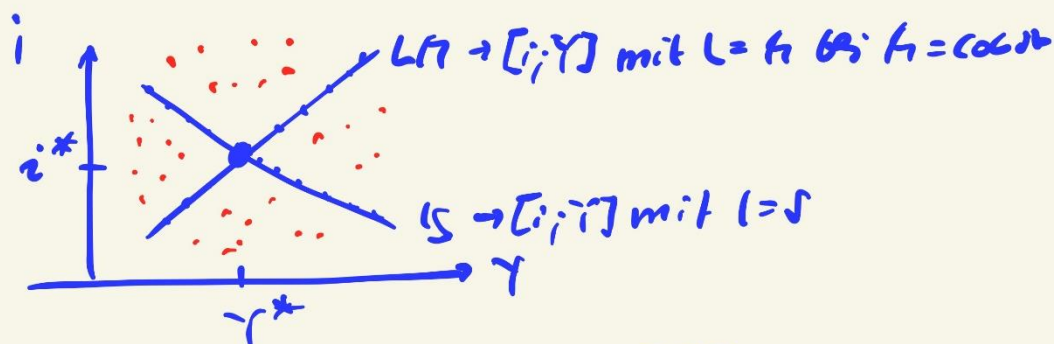 i
LM → [i; Y] mit L = M bei M = const
i*
IS → [i; Y] mit I = S
Y
Y*